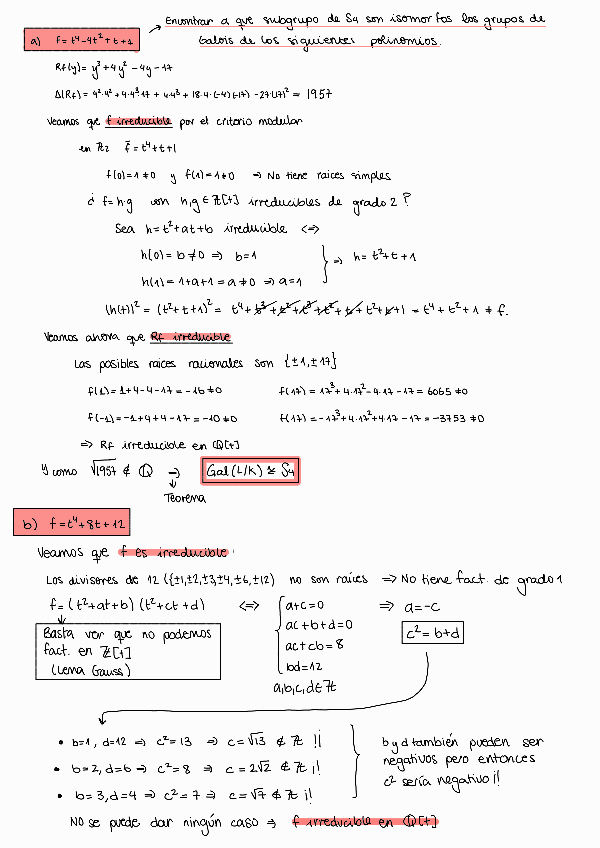 Encontrar a que subgrupo de S4 son isomorfos los grupos de
Galois de los siguientes polinomios.
a) f = t⁴-4t²+t+1
Rf(y) = y³+4y²-4y-17
Δ(Rf) = 4²·4²+4·4³·17 + 4·4³ + 18·4·(-4)(-17) -27·(17)² = 1957
Veamos que f irreducible por el criterio modular
en ℤ2 f̄ = t⁴+t+1
f(0)=1≠0 y f(1)=1≠0 ⇒ No tiene raices simples
¿ f=h·g con h,g ∈ ℤ[t] irreducibles de grado 2 ?
Sea h=t²+at+b irreducible <=>
h(0) = b≠0 ⇒ b=1
h(1) = 1+a+1 = a≠0 ⇒ a=1
⇒ h= t²+t+1
(h(t))² = (t²+t+1)² = t⁴+t³+t²+t³+t²+t+t²+t+1 = t⁴+t²+1 ≠ f.
Veamos ahora que Rf irreducible
Las posibles raices racionales son {±1,±17}
f(1)=1+4-4-17=-16≠0 f(17) = 17³+4·17²-4·17-17 = 6065≠0
f(-1)=-1+4+4-17=-10≠0 f(17)=-17³+4·17²+4·17-17=-3753≠0
⇒ Rf irreducible en ℚ[t]
Y como √1957 ∉ ℚ → Gal(L/K) ≅ S4
Teorema
b) f=t⁴+8t+12
Veamos que f es irreducible
Los divisores de 12 ({±1,±2,±3,±4,±6,±12}) no son raíces ⇒ No tiene fact. de grado 1
f= (t²+at+b) (t²+ct+d) <=> a+c=0 ⇒ a=-c
ac+b+d=0
c²=b+d
ad+cb=8
bd=12
a,b,c,d∈ℤ
Basta ver que no podemos
fact. en ℤ[t]
(Lema Gauss)
• b=1, d=12 ⇒ c²=13 ⇒ c=√13 ∉ ℤ ¡!
• b=2, d=6 ⇒ c²=8 ⇒ c=2√2 ∉ ℤ ¡!
• b=3, d=4 ⇒ c²=7 ⇒ c=√7 ∉ ℤ ¡!
b y d también pueden ser
negativos pero entonces
c² sería negativo ¡!
No se puede dar ningún caso ⇒ f irreducible en ℚ[t]